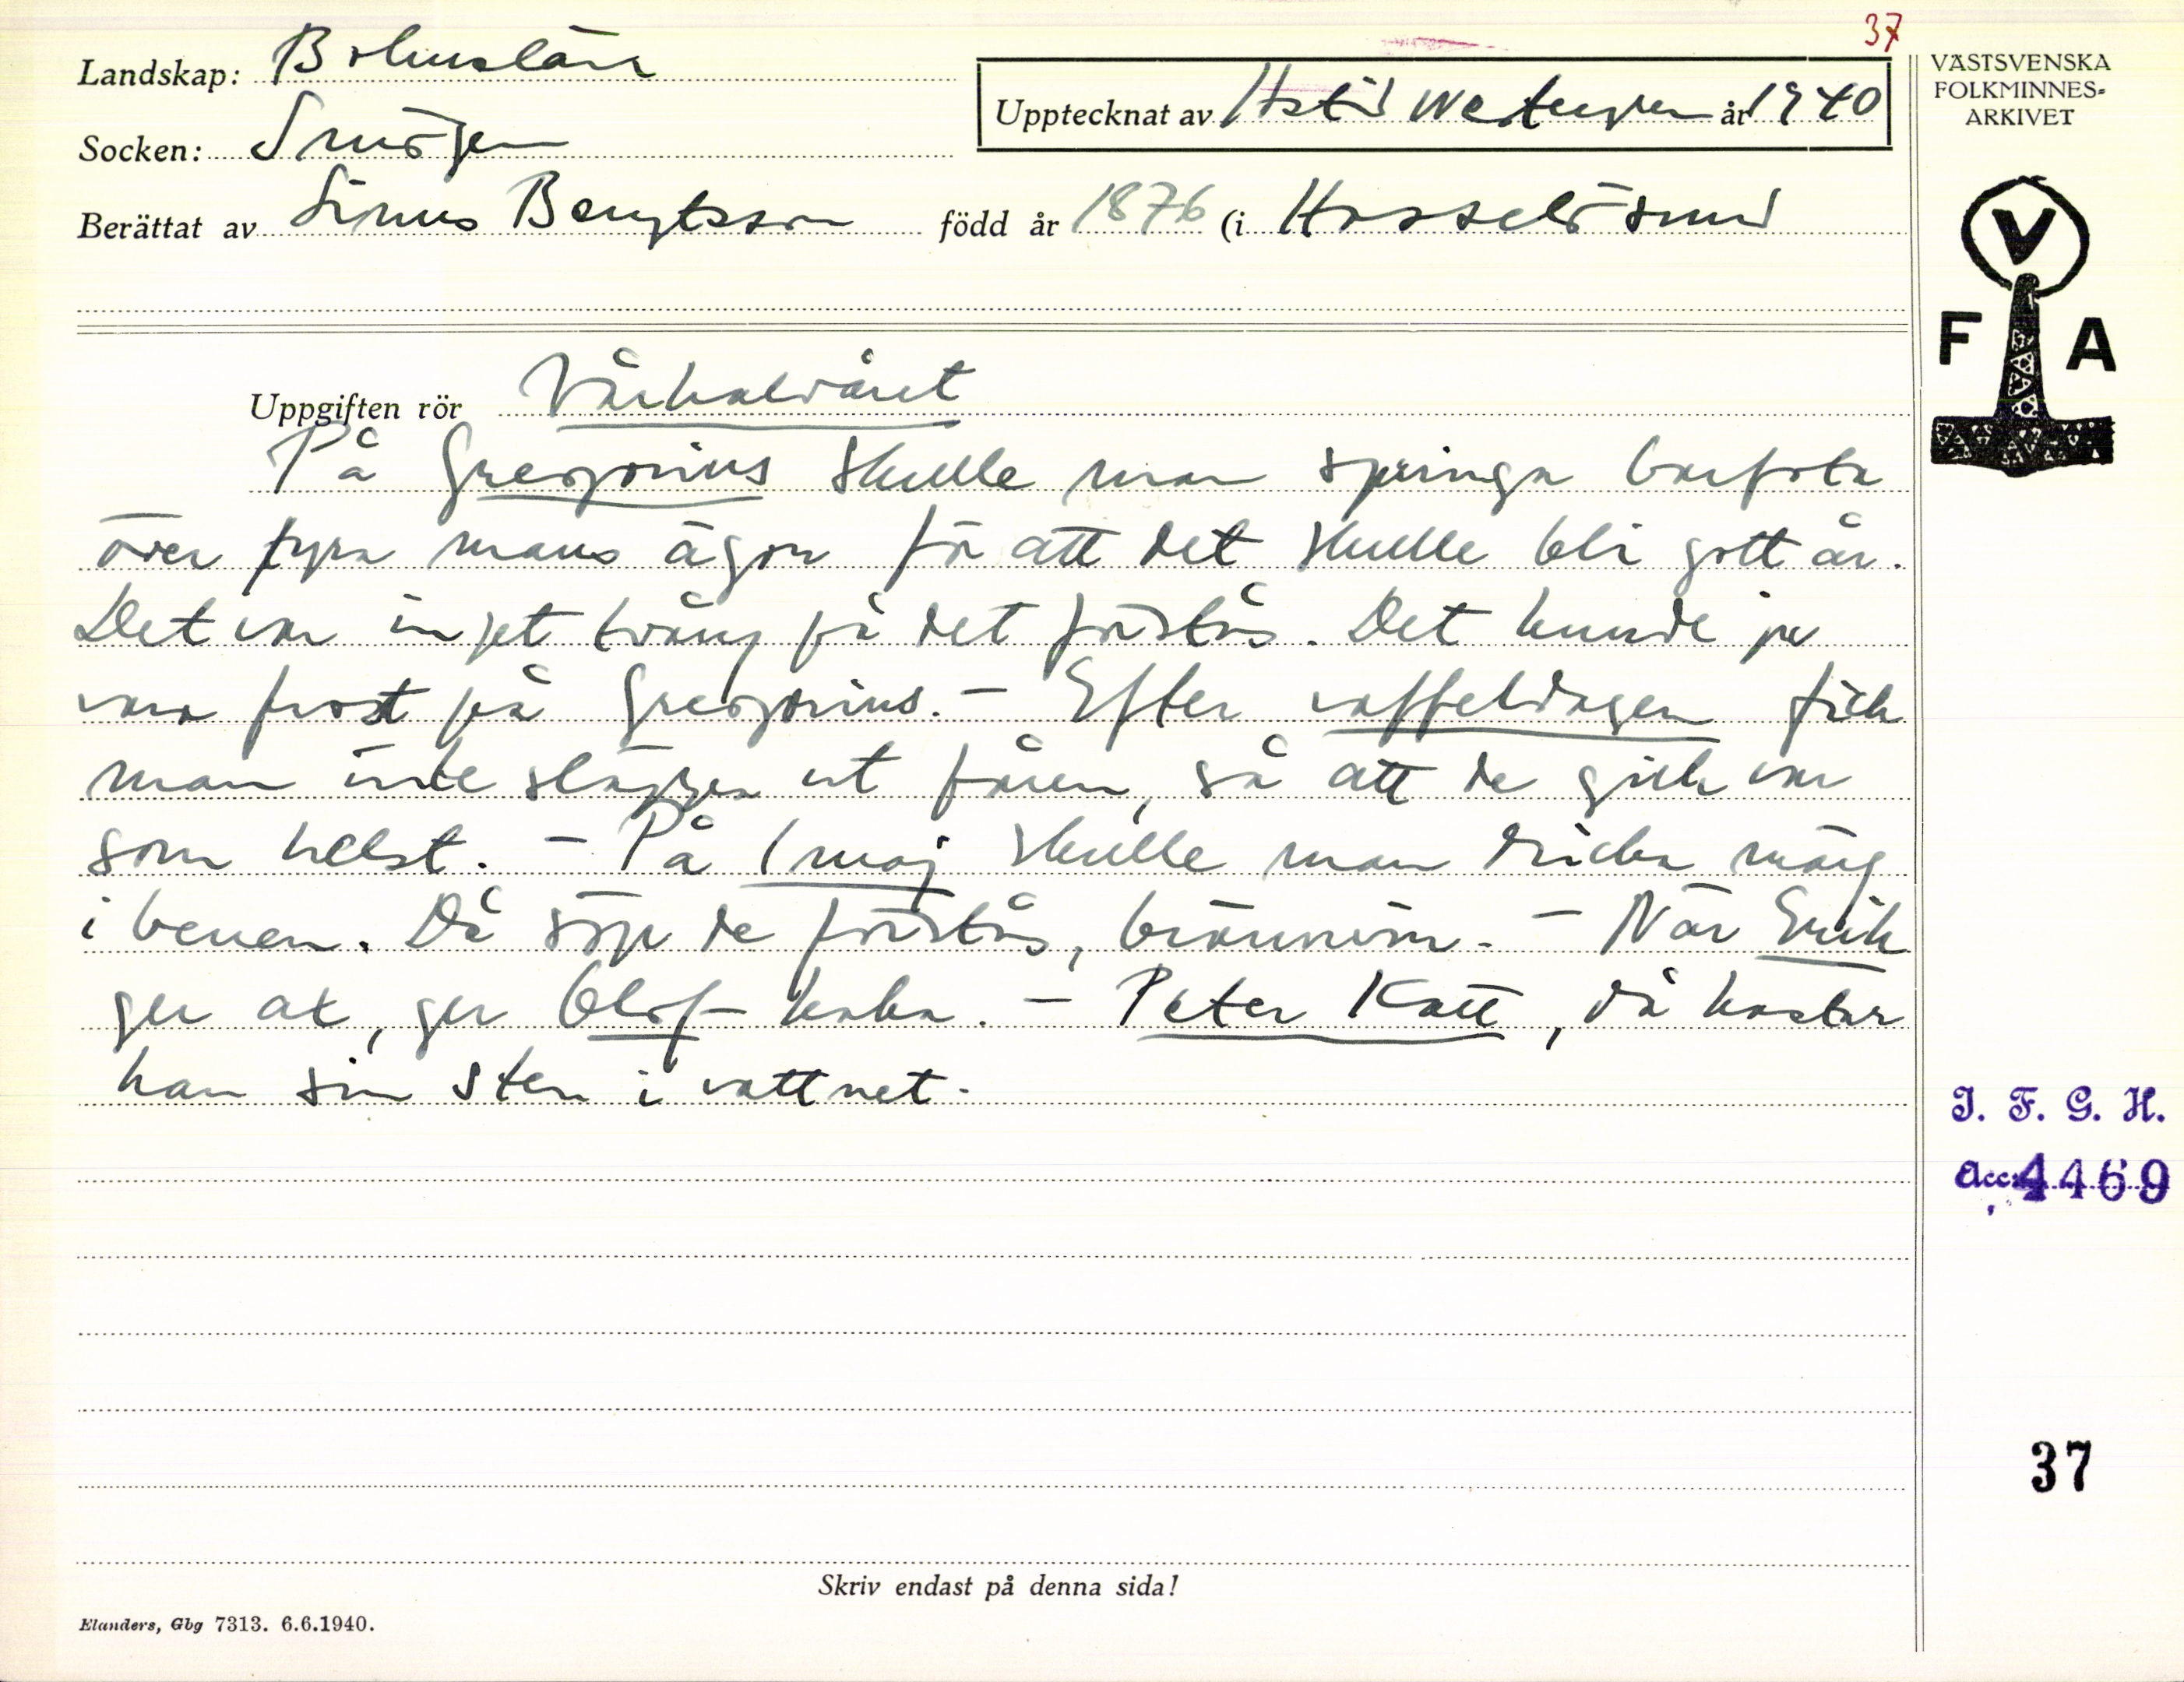 37
Landskap: Bohuslän
Socken: Smögen
Upptecknat av Hatid Westergren år 1940
Berättat av Linus Bengtsson född år 1876 (i Hasselösund
VÄSTSVENSKA
FOLKMINNES-
ARKIVET
V
F A
Uppgiften rör Vårhalvåret
På Gregorius skulle man springa barfota
över fyra mans ägor för att det skulle bli gott år.
Det var inget tvång på det förstås. Det kunde ju
vara frost på Gregorius. – Efter vaffeldagen fick
man inte släppa ut fåren, så att de gick var
som helst. – På 1 maj skulle man dricka märg
i benen. Då söp de förstås, brännvin. – När Erik
ger ax, ger Olof kaka. – Peter Katt, då kastar
han sin sten i vattnet.
I. F. G. H.
Acc: 4469
37
Skriv endast på denna sida!
Elanders, Gbg 7313. 6.6.1940.